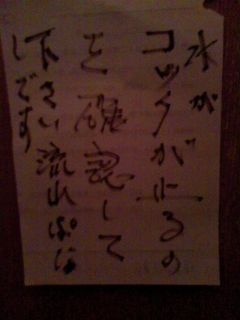 水が
コックが止るの
を確認して
下さい流れぱな
しです